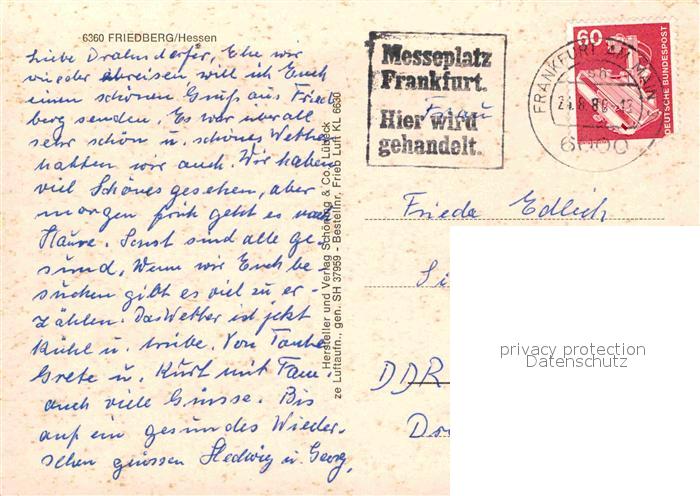 6360 FRIEDBERG/Hessen
Liebe Drahndorfer, Ehe wir
wieder abreisen will ich Euch
einen schönen Gruß aus Fried
berg senden. Es war überall
sehr schön u. schönes Wetter
hatten wir auch. Wir haben
viel Schönes gesehen, aber
morgen früh geht es nach
Hause. Sonst sind alle ge-
sund, Wenn wir Euch be-
suchen gibt es viel zu er-
zählen. Das Wetter ist jetzt
kühl u. trübe. Von Tante
Grete u. Kurt mit Fam.
auch viele Grüsse. Bis
auf ein gesundes Wieder-
sehen grüssen Hedwig u. Georg,
Hersteller und Verlag Schöning & Co., Lübeck
ze Luftaufn., gen. SH 37959 - Bestellnr. Frieb Luft KL 6630
Messeplatz
Frankfurt.
Hier wird
gehandelt.
FRANKFURT AM MAIN
6000
60
DEUTSCHE BUNDESPOST
Frau
Frieda Edlich
Si
DDR
privacy protection
Datenschutz